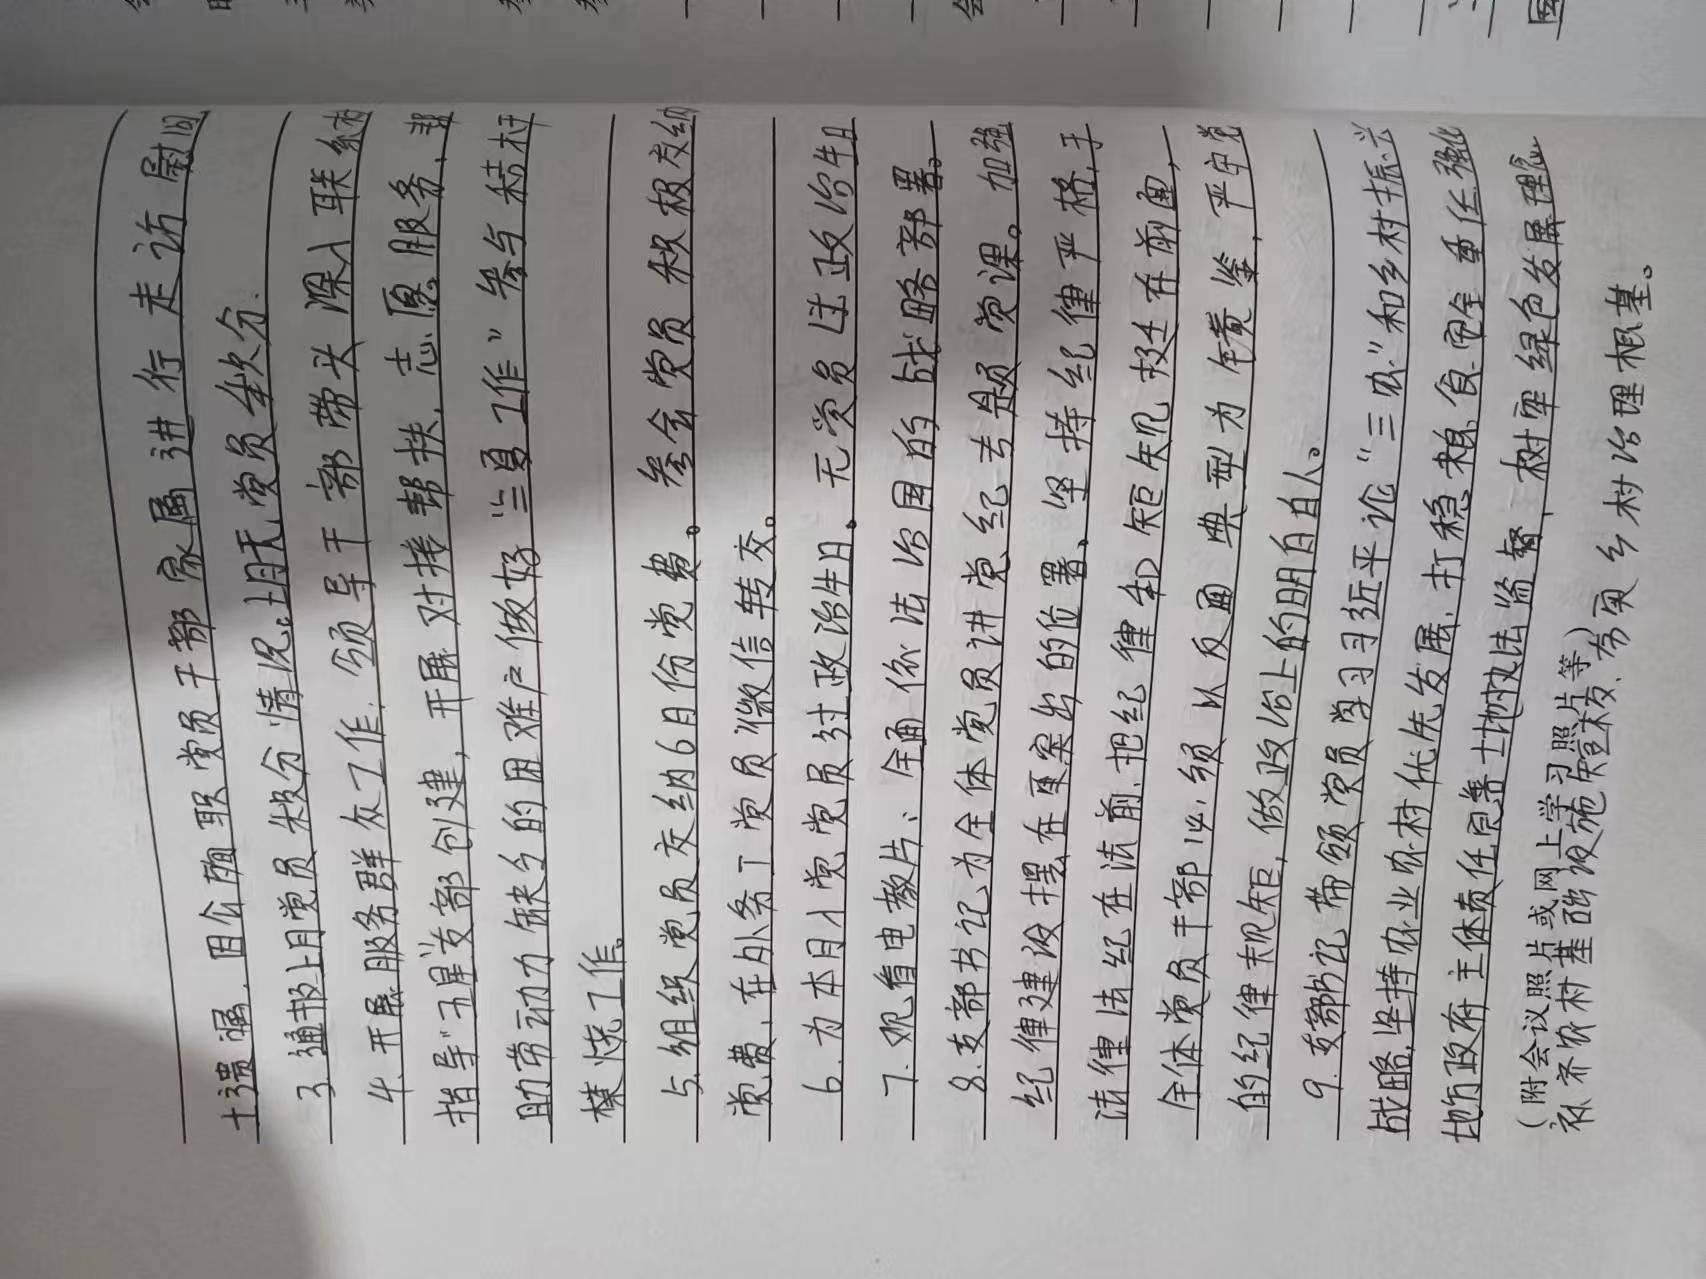 土遗孀、因公殉职党员干部家属进行走访慰问
3.通报上月党员积分情况。上月无党员扣分.
4.开展服务群众工作.领导干部带头深入联系村
指导"五星"支部创建,开展对接帮扶.志愿服务、帮
助带动力缺乏的困难户做好"三夏工作"参与秸秆
禁烧工作。
5.组织党员交纳6月份党费。参会党员积极交纳
党费,在外务工党员微信转交。
6.为本月入党党员过政治生日。无党员过政治生日
7.观看电教片:全面依法治国的战略部署。
8.支部书记为全体党员讲党纪专题党课。加强
纪律建设摆在更突出的位置。坚持纪律严格于
法律法纪在法前.把纪律和规矩挺在前面,
全体党员干部必须以反面典型为镜鉴,严守党
的纪律规矩,做政治上的明白人。
9.支部书记带领党员学习习近平论"三农"和乡村振兴
战略,坚持农业农村优先发展.打稳粮食安全重任.强化
地方政府主体责任完善土地执法监督、树牢绿色发展理念
(附会议照片或网上学习照片等)
补齐农村基础设施短板.夯实乡村治理根基。